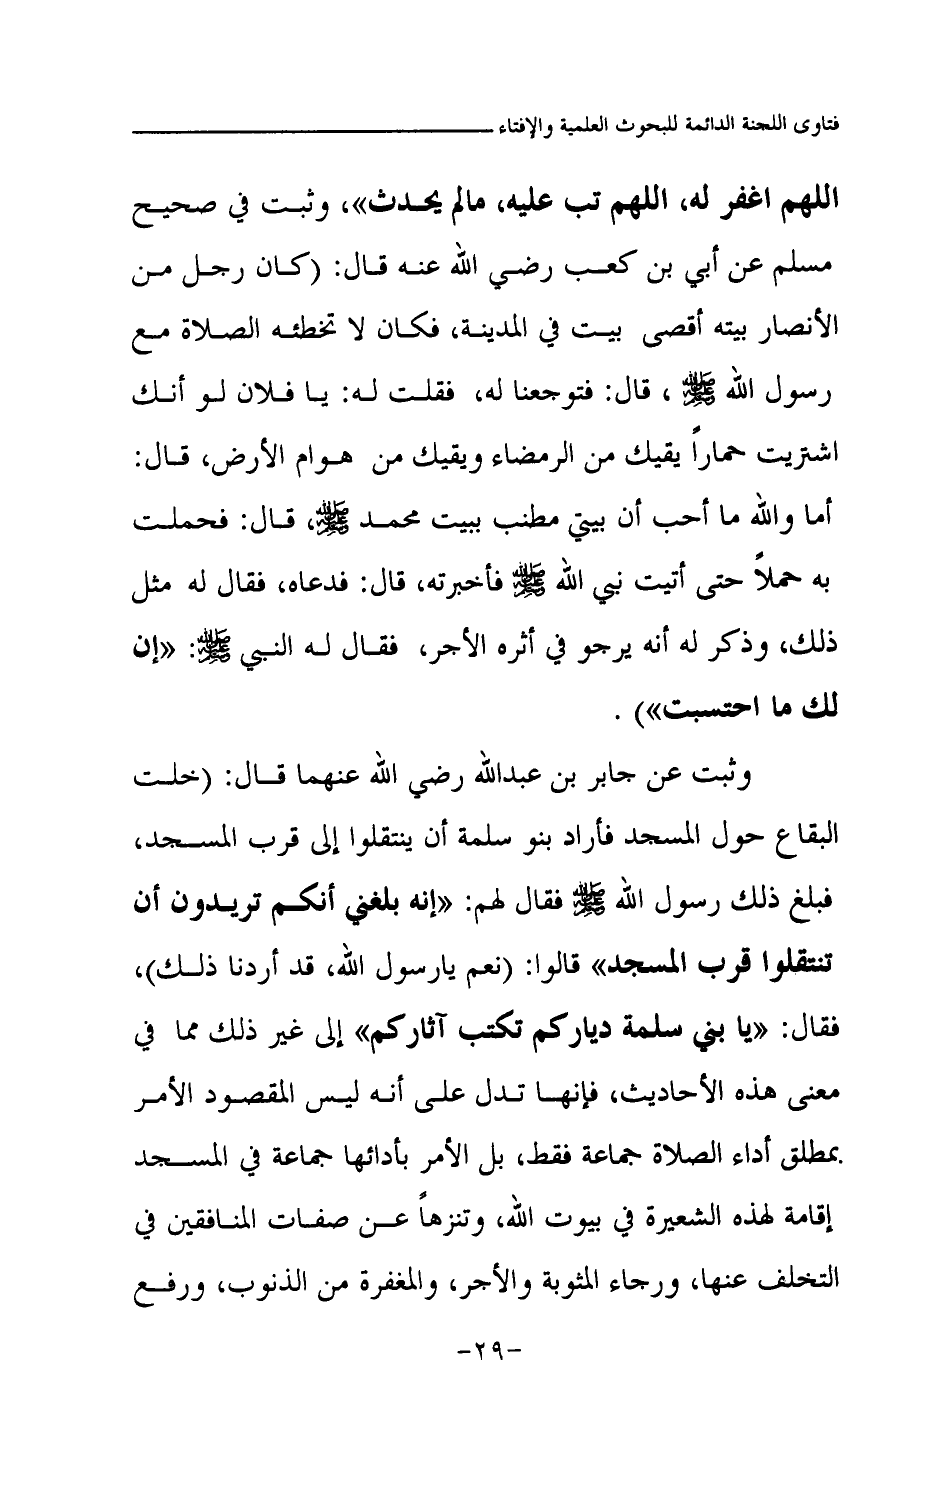 فتاوى اللجنة الدائمة للبحوث العلمية والإفتاء
اللهم اغفر له، اللهم تب عليه، مالم يحدث»، وثبت في صحيح
مسلم عن أبي بن كعب رضي الله عنه قال: (كان رجل من
الأنصار بيته أقصى بيت في المدينة، فكان لا تخطئه الصلاة مع
رسول الله ﷺ ، قال: فتوجعنا له، فقلت له: يا فلان لو أنك
اشتريت حماراً يقيك من الرمضاء ويقيك من هوام الأرض، قال:
أما والله ما أحب أن بيتي مطنب ببيت محمد ﷺ، قال: فحملت
به حملاً حتى أتيت نبي الله ﷺ فأخبرته، قال: فدعاه، فقال له مثل
ذلك، وذكر له أنه يرجو في أثره الأجر، فقال له النبي ﷺ: «إن
لك ما احتسبت») .
وثبت عن جابر بن عبدالله رضي الله عنهما قال: (خلت
البقاع حول المسجد فأراد بنو سلمة أن ينتقلوا إلى قرب المسجد،
فبلغ ذلك رسول الله ﷺ فقال لهم: «إنه بلغني أنكم تريدون أن
تنتقلوا قرب المسجد» قالوا: (نعم يارسول الله، قد أردنا ذلك)،
فقال: «يا بني سلمة دياركم تكتب آثاركم» إلى غير ذلك مما في
معنى هذه الأحاديث، فإنها تدل على أنه ليس المقصود الأمر
بمطلق أداء الصلاة جماعة فقط، بل الأمر بأدائها جماعة في المسجد
إقامة لهذه الشعيرة في بيوت الله، وتنزهاً عن صفات المنافقين في
التخلف عنها، ورجاء المثوبة والأجر، والمغفرة من الذنوب، ورفع
-٢٩-